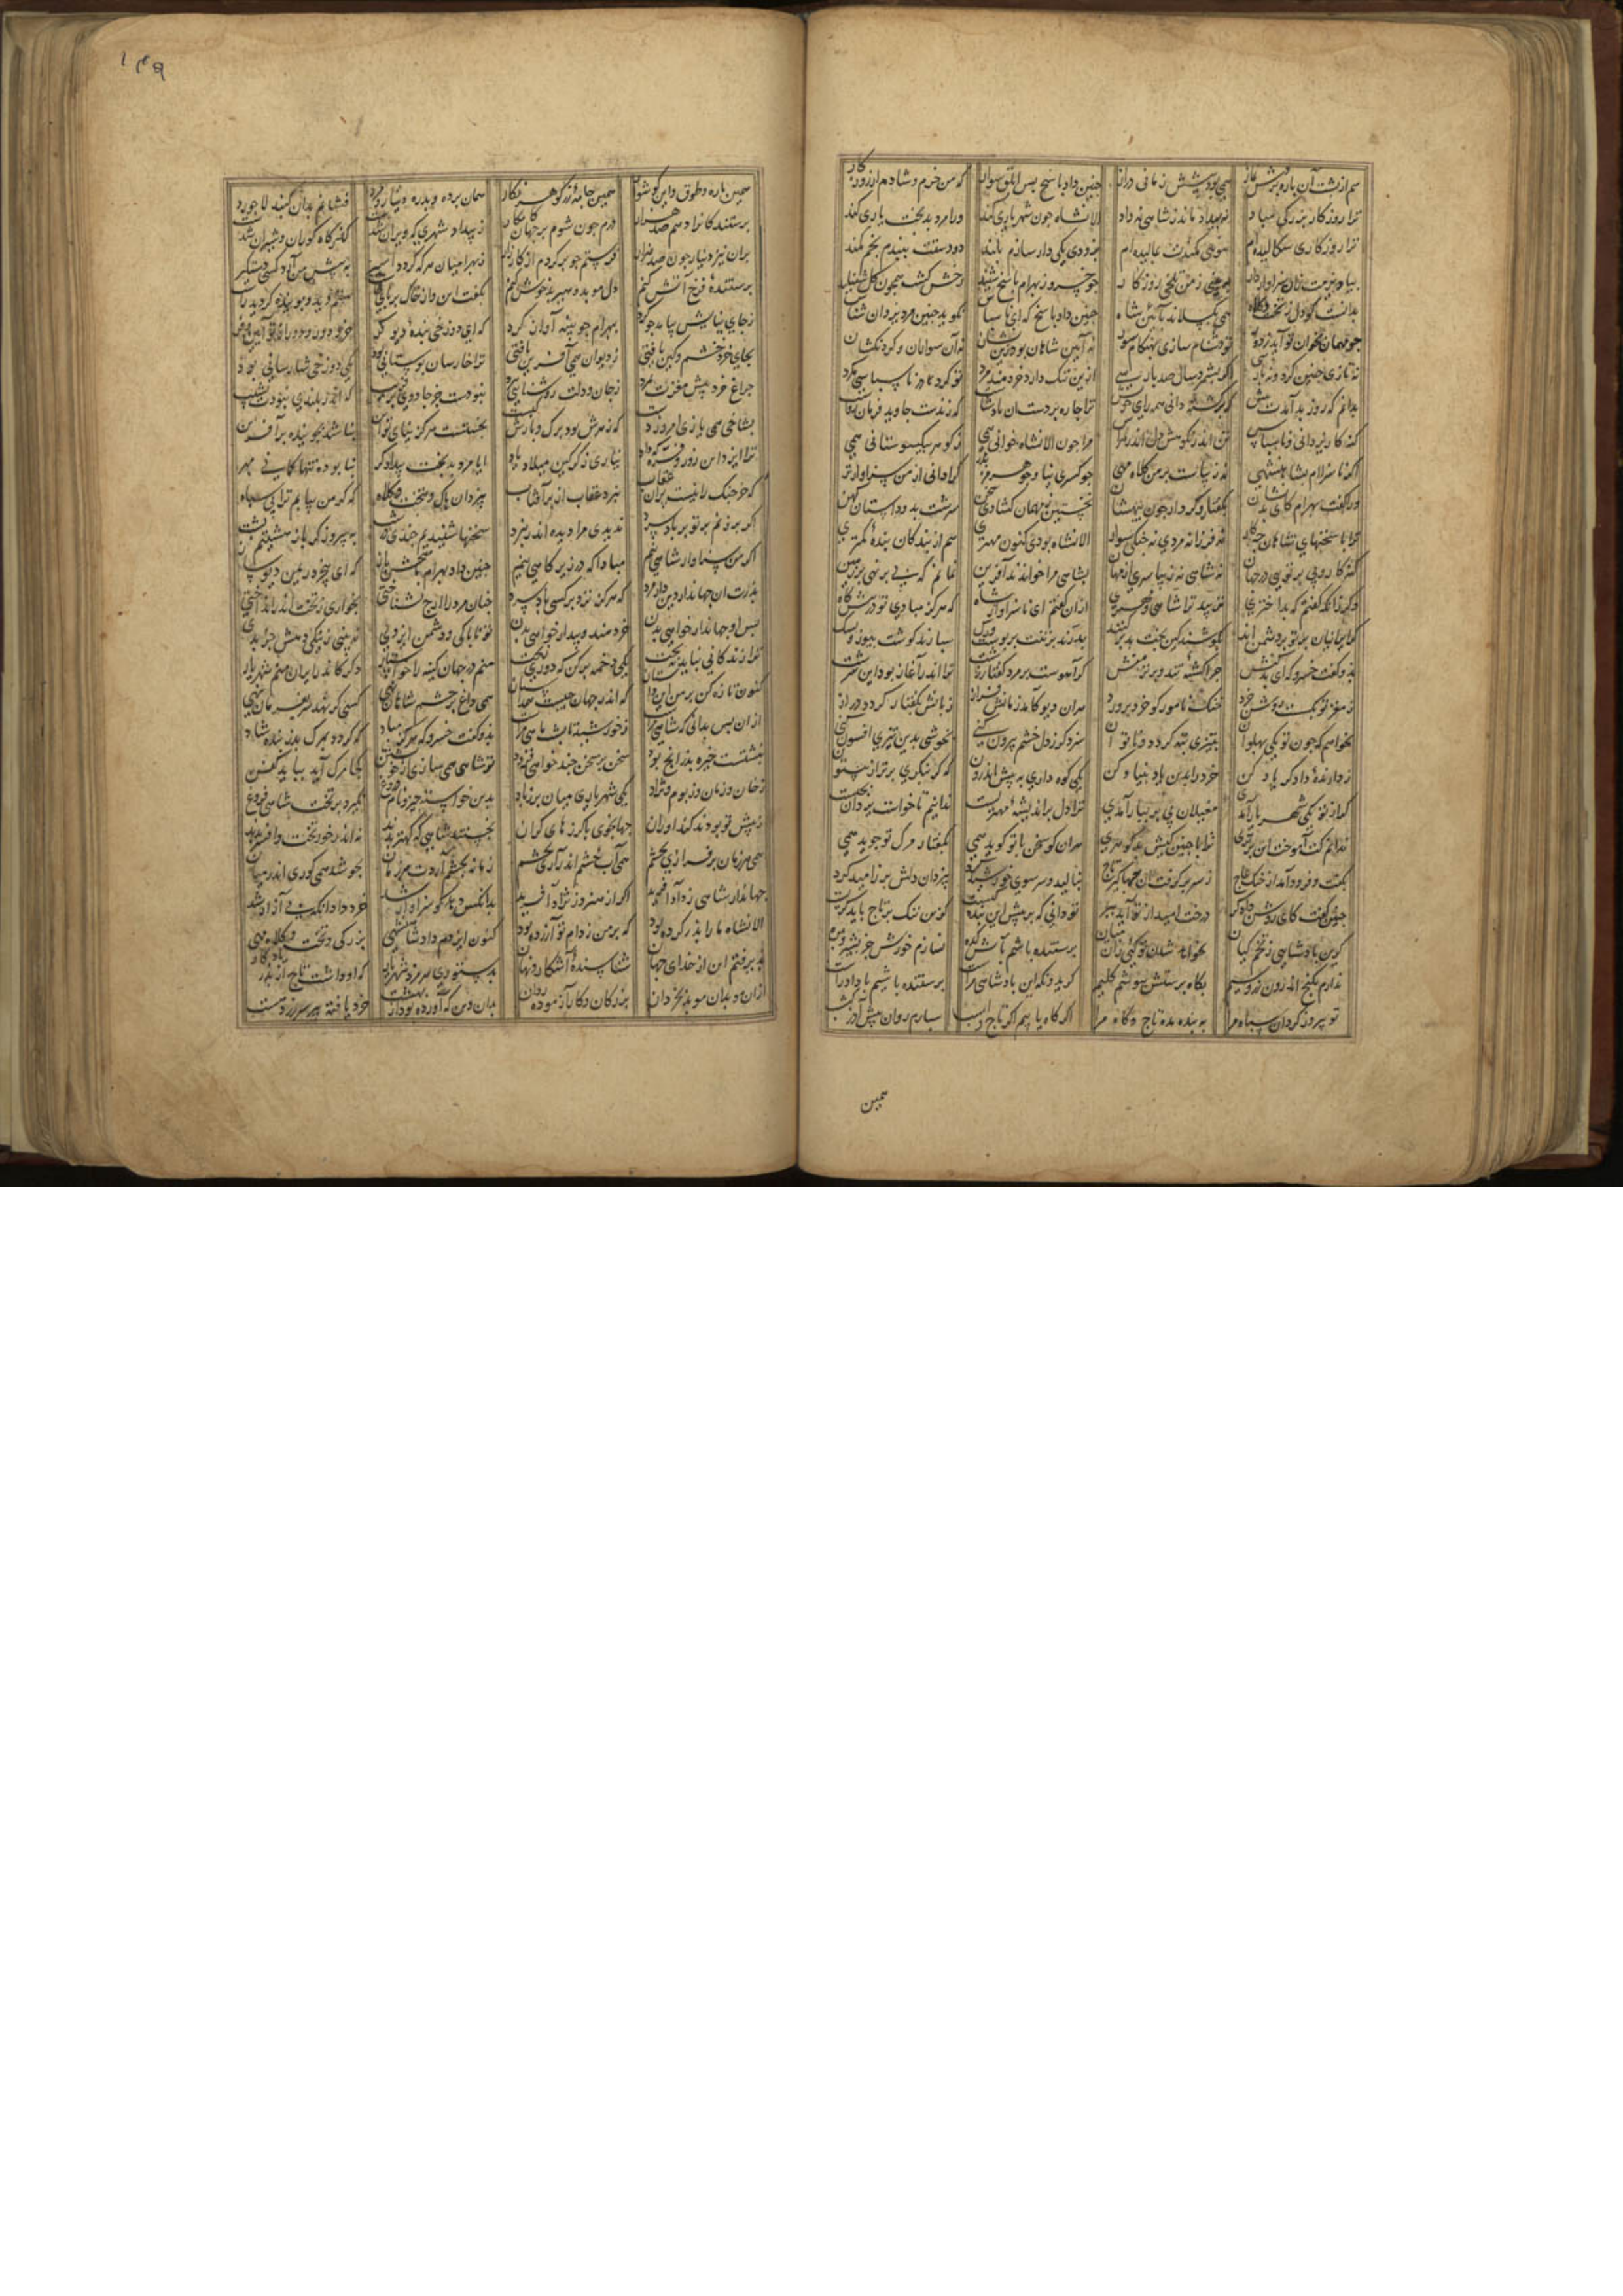 هم از پشت آن باره بردش نماز همی بود پیشش زمانی دراز چنین داد پاسخ پس ابلق سوار که من خرم و شادم از روزکار
ترا روزکار بزرکی مباد نه بیداد ماند ز شاهی نه داد الانشاه چون شهریاری کند ورا مرد بدبخت یاری کند
ترا روزکاری سکالیده ام بنوی کمندت بمالیده ام بزودی یکی دار سازم بلند دو دستت ببندم بخم کمند
بیاویزمت زان سزاوار دار ببینی ز من تلخی روزکار چو خسرو ز بهرام پاسخ شنید رخش کشت همچون کل شنبلید
بدانست کو دل ز تخت و کلاه همی نکسلاند بآئین شاه چنین داد پاسخ که ای ناسپاس نکوید چنین مرد یزدان شناس
چو مهمان بخوان تو آید ز دور تو دشنام سازی بهنکام سور نه آیین شاهان بود زین نشان نه آن سواران و کردنکشان
نه تازی چنین کرد و نه پارسی اکر بشمرد سال صد بار سی ازین ننک دارد خردمند مرد تو کرد در ناسپاسی مکرد
بدانم که روز بد آمدت پیش که برکشته دانی همه رای خویش ترا چاره بر دست آن پادشاست که زندست جاوید و فرمان رواست
کنه کار یزدانی و ناسپاس تن اندر نکوهش دل اندر هراس مرا چون الانشاه خوانی همی ز کوهر بیکسو ستانی همی
اکر ناسزایم بشاهنشهی نه زیباست بر من کلاه مهی چو کسری نیا و چو هرمز پدر کرا دانی از من سزاوارتر
ورا کفت بهرام کای بدنشان بکفتار و کردار چون بیهشان نخستین ز مهمان کشادی سخن سرشت بد و داستان کهن
ترا با سخنهای شاهان چکار نه فرزانه مردی نه جنکی سوار الانشاه بودی کنون مهتری هم از بندکان بنده کمتری
کنه کار توی در جهان نه شاهی نه زیبا سری از مهان بشاهی مرا خواندند آفرین نمانم که پی بر نهی بر زمین
دکر زانکه کفتم که بد اختری نزیبد ترا شاهی و مهتری ازان کفتم ای ناسزاوار شاه که هرکز مبادی تو در پیش کاه
که ایرانیان بر تو بر دشمن اند بکوشند بیخت برکنند بدرند بر تنت بر پوست و رک سپارند کوشت بپوز سک
بدو کفت خسرو که ای بدکنش چرا کشته تند و برتر منش که آهوست بر مرد کفتار زشت ترا اندر آغاز بود این سرشت
ز مغز تو بکسست روشن خرد خنک نامور کو خرد پرورد هران دیو کاید زمانش فراز زبانش بکفتار کردد دراز
نخواهم که چون تو یکی پهلوان بتیزی تبه کردد و ناتوان سزد کر ز دل خشم بیرون کنی نجوشی بدین تیزی افسون کنی
ز دارنده دادکر یاد کن خرد را بدین یاد بنیاد کن یکی کوه داری به پیش اندرون که کر بنکری برتر از بیستون
کر از تو یکی شهریار آمدی مغیلان بی بر ببار آمدی ترا دل بر اندیشه مهتریست ندانیم تا خواست یزدان بچیست
ندانم کت آموخت این بدتری ترا با چنین کیش بدکوهری هران کو سخن با تو کوید همی بکفتار مرک تو جوید همی
بکفت و فرود آمد از خنک عاج ز سر برکرفت آن جهانکیر تاج بنالید و سر سوی خورشید کرد بیزدان دلش پر ز امید کرد
چنین کفت کای روشن دادکر درخت امید از تو آید ببر تو دانی که بر پیش این بنده کیست کزین ننک بر تاج باید کریست
کرین پادشاهی ز تخم کیان بخواهد شدن تو کنی زان میان پرستنده باشم بآتشکده نسازم خورش جز بشیر
ندارم بکنج اندرون زر و سیم بکاه پرستش بپوشم کلیم کر ایدونکه این پادشاهی مراست پرستنده باشیم با داد و راست
تو پیروز کردان سپاه مرا به بنده مده تاج و کاه مرا اکر کام یابم اکر تاج و اسب سپارم روان پیش آذرکشسب
همین
۱۴۹
همین یاره و طوق و این کوشوار همین جامه زر کوهر نکار همان برده و بدره دینار زرد فشانم بدان کنبد لاجورد
پرستندکانرا دهم صد هزار درم چون شوم بر جهان کامکار ز بیداد شهری که ویران شدست کذرکاه کوران و شیران شدست
بران نیز دینار چون صد هزار فرستم چو برکردم از کارزار ز بهرامیان هر که کردد اسیر به پیش من آرد کسی دستکیر
پرستنده فرخ آتش کنم دل موبد و هیربد خوش کنم بکفت این و از خاک بر پای خاست ستم دیده
ز جای نیایش بیامد چو کرد ببهرام چوبینه آواز کرد که ای دوزخی بنده دیو کر خرد دور و دور از تو آیین و فر
بجای خرد خشم و کین یافتی ز دیوان همی آفرین یافتی ترا خارسان بوستانی نمود یکی دوزخی شارسانی نمود
چراغ خرد پیش مغزت بمرد ز جان و دلت روشنایی ببرد نبودست جز جادوی پر فریب که اندر بلندی نمودت نشیب
بشاخی همی یازی امروز دست که زهرش بود برک و بارش کبست نجستست هرکز نیای تو این نباشد بجوینده بر آفرین
ترا ایزد این زور و فره نداد نیاری ز کرکین میلاد یاد ایا مرد بدبخت بیدادکر
که خرچنک را نیست پر عقاب نپرد عقاب از بر آفتاب بیزدان پاک و بتخت و کلاه که کر من بیابم ترا بی سپاه
اکر برزنم بر تو بر باد سرد ندیدی مرا دیده اندر نبرد سخنها شنیدیم چندی درشت به پیروزکر باز هشتیم پشت
اکر من سزاوار شاهی نیم مبادا که در زیر کاهی نیم چنین داد بهرام پاسخش باز که ای بیخرد ریمن دیو ساز
پدرت ان جهاندار دین داد مرد که هرکز نزد بر کسی باد سرد چنان مرد را ارج نشناختی بخواری ز تخت اندر انداختی
پس او جهاندار خواهی بدن خردمند و بیدار خواهی بدن تو ناپاکی و دشمن ایزدی نبینی ز نیکی دهش جز بدی
ترا زندکانی نیاید بتخت یکی دخمه بر کن که دوری ز بخت منم در جهان کینه را خواستار دکر کاندر ایران منم شهریار
کنون تازه کن بر من این داستان که اندر جهان چیست همداستان همی داغ بر چشم شاهان نهی کسی کو نهد نیز فرمان دهی
ازان پس بدانی که شاهی مراست ز خورشید تا پشت ماهی مراست بدو کفت خسرو که هرکز مباد که کردد بمرک پدر بنده شاد
نبشتست بود سخن بر سخن چند خواهی فزود تو شاهی همی سازی از خویشتن مرک آید نیابی کفن
ز خان و ز مان و ز بوم و نژاد یکی شهریاری میان پر ز باد بدین خواسته چیز و نام دروغ نکیرد بر تخت شاهی فروغ
ز پیش تو بودند کنداوران جهانجوی با کرزهای کران نجستند شاهی که کهتر بدند نه اندر خور تخت و افسر بدند
همی هر زمان سر فرازی بخشم همی آب خشم اندر آری بچشم زمانه بخشم آردت هر زمان بجوشد همی کوری اندر میان
جهاندار شاهی ز داد آفرید اکر از هنر وز نژاد آفرید بدانکس دهد کو سزاوارتر
الانشاه ما را پدر کرده بود که بر من ز دام تو آزرده بود کنون ایزدم داد شاهنشهی بزرکی و تخت و کلاه مهی
پذیرفتم این از خدای جهان شناسنده آشکار و نهان بدستوری هرمزد شهریار که او داشت تاج از پدر یادکار
ازان و بدان موبد بخردان بزرکان و کار آزموده ردان بدان دین که آورده بود از بهشت خرد یافته پیر سر زردهشت